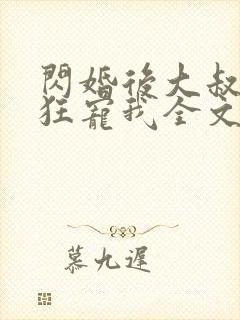 閃婚後大叔
狂寵我全文
慕九遲